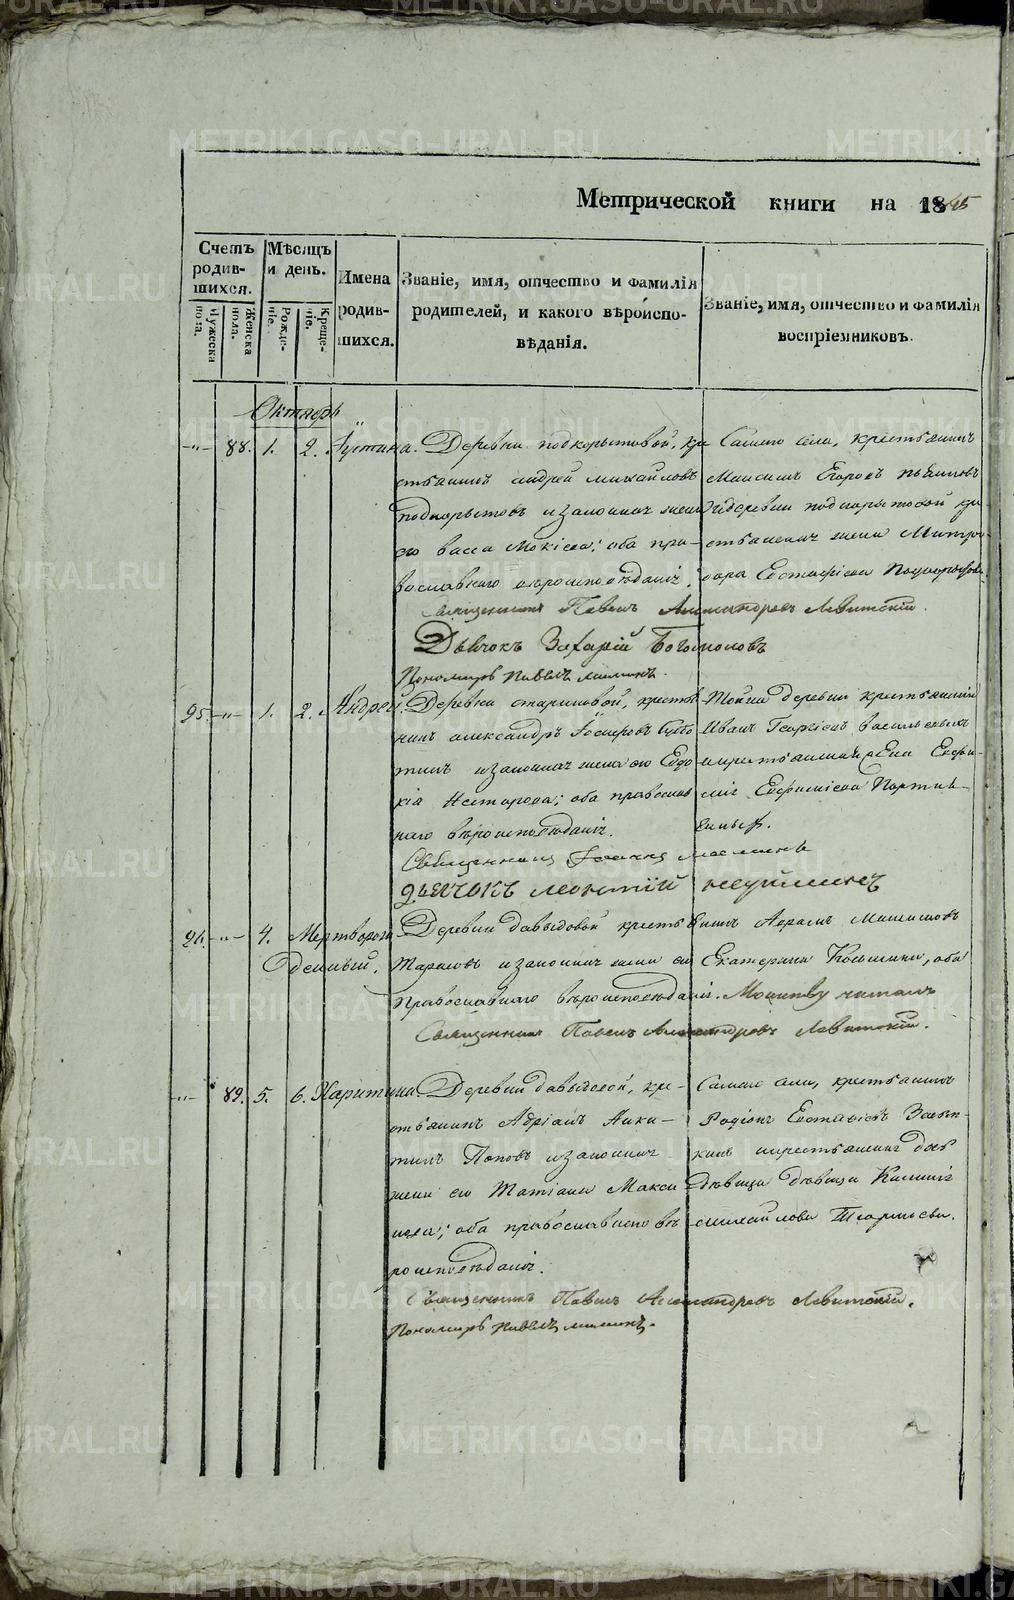 METRIKI.GASO-URAL.RU
Метрической книги на 1845
Счетъ родив-
шихся.
Мужеска пола.
Женска пола.
Мѣсяцъ и день.
Рожде-
ніе.
Креще-
ніе.
Имена
родив-
шихся.
Званіе, имя, отчество и фамилія
родителей, и какого вѣроиспо-
вѣданія.
Званіе, имя, отчество и фамилія
воспріемниковъ.
Октябрь
-"- 88. 1. 2. Іустина. Деревни Подкорытовой, кре
стьянинъ Андрей Михайловъ
Подкорытовъ и законная жена
его Васса Мокіева; оба пра-
вославнаго вѣроисповѣданія.
Самаго села, крестьянинъ
Максимъ Егоровъ
и деревни Подкорытовой кре
стьянина жена Митро-
дора Евстафіева Подкорытова.
Священникъ Павелъ Александровъ Левитскій.
Дьячокъ Захарій Богомоловъ
Пономарь Павелъ
95. -"- 1. 2. Андрей. Деревни Стариковой, крестья
нинъ Александръ
тинъ и законная жена его Евдо
кія Несторова; оба православ
наго вѣроисповѣданія.
Тойже деревни крестьянинъ
Иванъ Георгіевъ
и крестьянина Евфи-
мія Евфиміева
Священникъ Іоаннъ
Дьячокъ Леонтій
96. -"- 4. Мертворож
денный.
Деревни Давыдовой крестьянинъ Абрамъ
Тарасовъ и законная жена его Екатерина Козьмина, оба
православнаго вѣроисповѣданія. Молитву читалъ
Священникъ Павелъ Александровъ Левитскій.
-"- 89. 5. 6. Харитина. Деревни Давыдовой, кре-
стьянинъ Адріанъ Ники-
тинъ Поповъ и законная
жена его Татіана Макси
мова; оба православнаго вѣ
роисповѣданія.
Самаго села, крестьянинъ
Родіонъ Евстафіевъ
кинъ и крестьянина дочь
дѣвица
Михайлова
Священникъ Павелъ Александровъ Левитскій.
Пономарь Павелъ